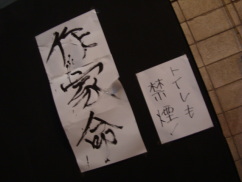 作家命
トイレも
禁煙!